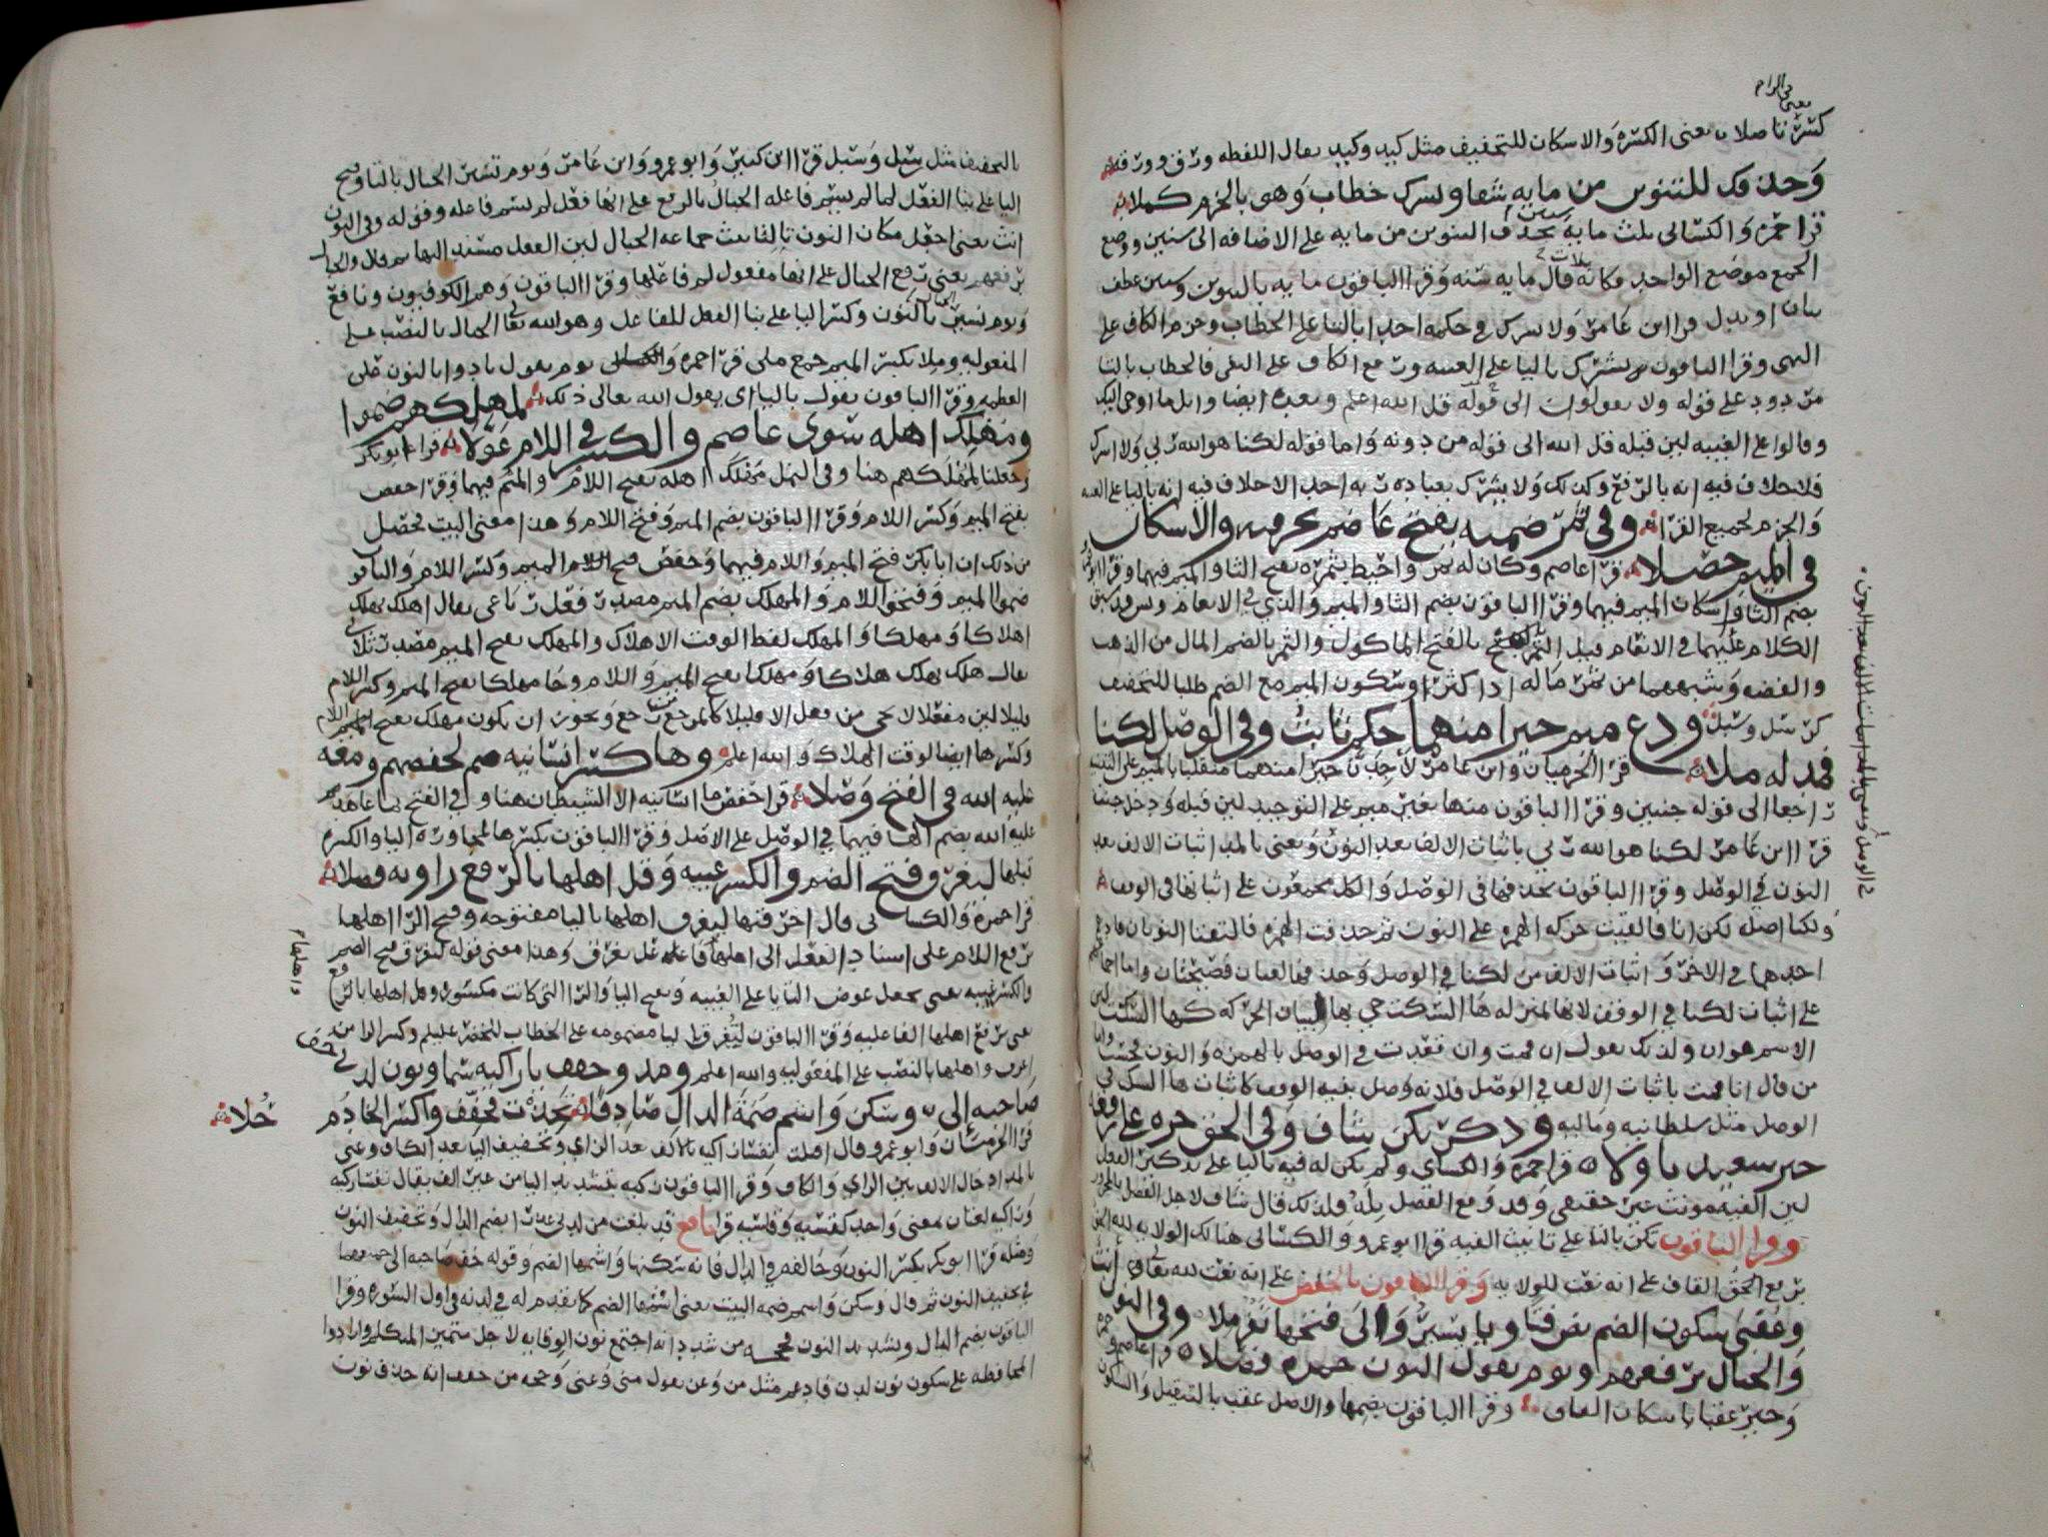 يعني الراء
كسرنا صلان يعني الكسره والاسكان للتخفيف مثل كبد وكبد يقال اللفظه ورق وورق
وحذفك للتنوين من مايه شفا وتشرك خطاب وهو بالجزم كملا
قرا حمزه والكسائي ثلث مايه سنين بحذف التنوين من مايه على الاضافه الى سنين ووضع
الجمع موضع الواحد فكانه قال ثلاث مايه سنه وقرا الباقون مايه بالتنوين وسنين عطف
بيان او بدل قرا ابن عامر ولا تشرك في حكمه احدا بالتا على الخطاب وجزم الكاف على
النهي وقرا الباقون يشرك باليا على الغيبه ورفع الكاف على النفي فالخطاب بالتا
مردود على قوله ولا تقولون الى قوله قل الله اعلم وبعده ايضا واتل ما اوحي اليك
وقالوا على الغيبه لين قبله قل الله الى قوله من دونه واما قوله لكنا هو الله ربي ولا اشرك
فلا خلاف فيه انه بالرفع وكذلك ولا يشرك بعباده ربه احدا لا خلاف فيه انه باليا على
والجزم لجميع القرا وفي ثمر ضميه يفتح عاصم بحرفيه والاسكان
في الميم حصلا قرا عاصم وكان له ثمر واحيط بثمره بفتح الثا والميم فيهما وقرا ابو
بضم الثا واسكان الميم فيهما وقرا الباقون بضم الثا والميم والذي في الانعام ويس
الكلام عليهما في الانعام قيل الثمر بالفتح الماكول والثمر بالضم المال من الذهب
والفضه وشبههما من ثمر ماله اذا كثر او سكون الميم مع الضم طلبا للتخفيف
كرسل وسبل ودع ميم خيرا منهما حكم ثابت وفي الوصل لكنا
فمد له ملا قرا الحرميان وابن عامر لاجدن خيرا منهما منقلبا بالميم على التثنيه
راجعا الى قوله جنتين وقرا الباقون منها بغير ميم على التوحيد لين قبله ودخل جنته
قرا ابن عامر لكنا هو الله ربي باثبات الالف بعد النون ويعني بالمد اثبات الالف بعد
النون في الوصل وقرا الباقون بحذفها في الوصل والكل مجمعون على اثباتها في الوقف
ولكنا اصله لكن انا فالقيت حركه الهمزه على النون ثم حذفت الهمزه فالتقتا النونان فادغم
احدهما في الاخر واثبات الالف من لكنا في الوصل وحذفها لغتان فصيحتان واما اجماعهم
على اثبات لكنا في الوقف لانها بمنزله ها السكت جي بها لبيان الحركه كها السكت
الاسم هو ان ولذلك يقول ان قمت وان قعدت في الوصل بالهمزه والنون
من قال انا قمت باثبات الالف في الوصل فلانه وصل بنيه الوقف كاثبات ها السكت في
الوصل مثل سلطانيه وماليه وذكر تكن شاف وفي الحق جره على رفعه
حبر سعيد تاولا قرا حمزه والكسائي ولم يكن له فيه باليا على تذكير الفعل
لين الفيه مونث غير حقيقي وقد وقع الفصل بله فلذلك قال شاف لاجل الفصل
وقرا الباقون تكن بالتا على تانيث الفيه قرا ابو عمرو والكسائي هنالك الولايه لله الحق
برفع الحق القاف على انه نعت للولايه وقرا الباقون بالخفض على انه نعت لله تعالى
وعقبى سكون الضم نص فتى ويا نسير والى فتحها نفر ملا وفي النون انث
والجبال برفعهم ويوم يقول النون حمزه فضلا قرا عاصم وحمزه
وخير عقبا باسكان القاف وقرا الباقون بضمها والاصل عقب بالتثقيل والسكون
في الوصل ويعني بالمد اثبات الالف بعد النون
بالتخفيف مثل رسل وسبل قرا ابن كثير وابو عمرو وابن عامر ويوم تسير الجبال بالتا وفتح
اليا على بنا الفعل لما لم يسم فاعله الجبال بالرفع على انها فعل لم يسم فاعله وقوله وفي النون
انث يعني اجعل مكان النون تا لتانيث جماعه الجبال لين الفعل مسند اليها ثم قال والجبال
برفعهم يعني رفع الجبال على انها مفعول لم فاعلها وقرا الباقون وهم الكوفيون ونافع
ويوم نسير الجبال بالنون وكسر اليا على بنا الفعل للفاعل وهو الله تعالى الجبال بالنصب على
المفعوليه وملا بكسر الميم جمع ملى قرا حمزه يوم يقول نادوا بالنون على
العظمه وقرا الباقون يقول باليا اى يقول الله تعالى ذلك لمهلكهم ضموا
ومهلك اهله سوى عاصم والكسر في اللام عولا قرا ابو بكر
وجعلنا لمهلكهم هنا وفي النمل مهلك اهله بفتح اللام والميم فيهما وقرا حفص
بفتح الميم وكسر اللام وقرا الباقون بضم الميم وفتح اللام وهذا معنى البيت تحصل
من ذلك ان ابا بكر فتح الميم واللام فيهما وحفص فتح الميم وكسر اللام والباقو
ضموا الميم وفتحوا اللام والمهلك بضم الميم مصدر فعل رباعي يقال اهلك يهلك
اهلاكا ومهلكا والمهلك لفظ الوقت الاهلاك والمهلك بفتح الميم مصدر ثلاثي
يقال هلك يهلك هلاكا ومهلكا بفتح الميم واللام وجا مهلكا بفتح الميم وكسر اللام
قليلا لين مفعلا لا يجي من يفعل الا قليلا كالمرجع من رجع ويجوز ان يكون مهلك بفتح الميم اللام
وكسرها ايضا لوقت الهلاك والله اعلم وها كسر انسانيه ضم لحفصهم ومعه
عليه الله في الفتح وصلا قرا حفص وما انسانيه الا الشيطان هنا وفي الفتح بما عاهد
عليه الله بضم الها فيهما في الوصل على الاصل وقرا الباقون بكسرها لمجاوره اليا والكسر
قبلها لتغرق فتح الضم والكسر غيبه وقل اهلها بالرفع راويه فصلا
قرا حمزه والكسائي قال اخرقتها ليغرق اهلها باليا مفتوحه وفتح الرا اهلها
برفع اللام على اسناد الفعل الى اهلها فاعله غل يغرق وهذا معنى قوله لتغرق فتح الضم
والكسر غيبه يعني بجعل عوض التا يا على الغيبه وبفتح اليا والرا التي كانت مكسوره وقل اهلها بالرفع
يعني برفع اهلها الفاعليه وقرا الباقون لتغرق بتا مضمومه على الخطاب للخضر عليلم وكسر الرا من
اغرق واهلها بالنصب على المفعوليه والله اعلم ومد وخفف يا زاكيه سما ونون لدني خف
صاحبه الى وسكن واشمم ضمه الدال صادقا تخذت فخفف واكسر الخا دم حلا
قرا الحرميان وابو عمرو قال اقتلت نفسا زاكيه بالالف بعد الزاي وتخفيف اليا بعد الكاف وعنى
بالمد ادخال الالف بين الزاي والكاف وقرا الباقون زكيه بتشديد اليا من غير الف يقال نفسا زكيه
وزاكيه لغتان بمعنى واحد كقسيه وقاسيه قرا نافع قد بلغت من لدني عذرا بضم الدال وتخفيف النون
ومثله قرا ابو بكر بكسر النون وخالفه في الدال فانه سكنها واشمها الضم وقوله خف صاحبه الى جميعهما
في تخفيف النون ثم قال وسكن واشمم ضمه البيت يعني اشمها الضم كما تقدم له في لدنه في اول السوره وقرا
الباقون بضم الدال وتشديد النون فحجه من شدد انه اجتمع نون الوقايه لاجل ستمين المتكلم وارادوا
المحافظه على سكون نون لدن فادغم مثل من وعن يقول منى وعنى وحجه من خفف انه حذف نون
واهلها